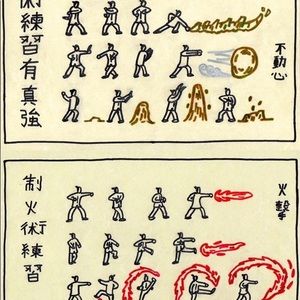 術練習有真強
不動心
制火術練習
火撃